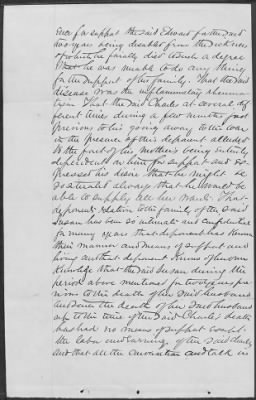 Ever for support the said Edward for the said
two years being disabled from the sickness
of which he finally died to such a degree
that he was unable to do any thing
for the support of the family. That the said
disease was the inflammatory rheuma-
tism That the said Charles at several dif-
ferent times during a few months just
previous to his going away to the war
in the presence of this deponent alluded
to the fact of his Mother's being entirely
dependent on him for support and ex-
pressed his desire that he might be
so situated always that he would be
able to supply all her wants. That
deponents relation to the family of the said
Susan has been so intimate and confidential
for many years that deponent has known
their manner and means of support and
living and that deponent knows of her own
knowledge that the said Susan during the
period above mentioned for two years pre-
vious to the death of her said husband
and since the death of her said husband
up to the time of the said Charles death
has had no means of support except
the labor and earnings of the said Charles
and that all the conversation and talk in